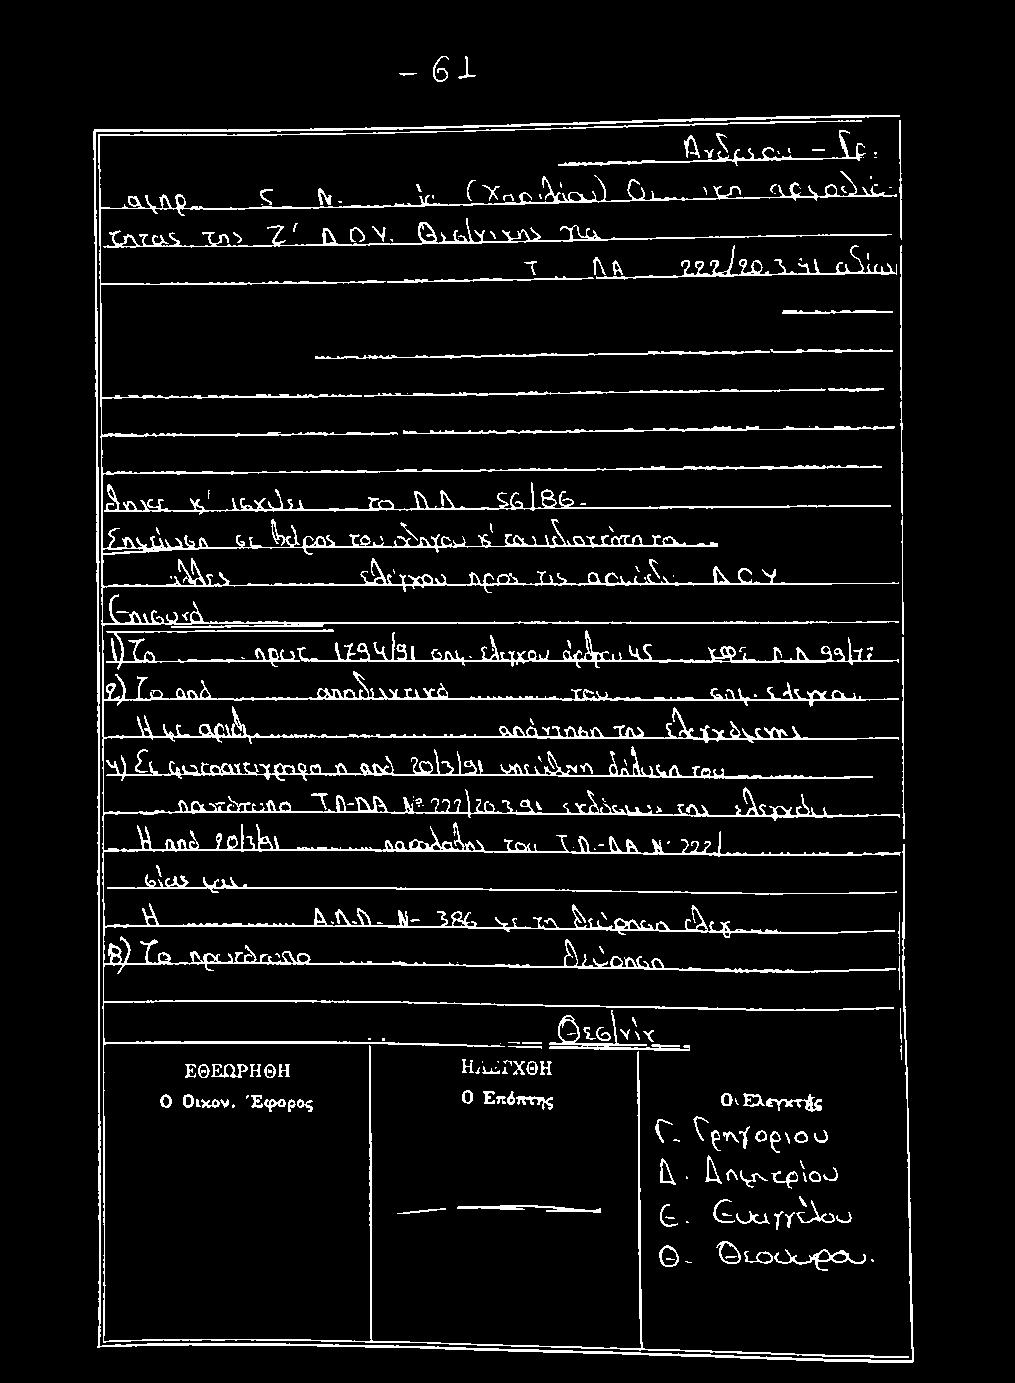 - 61
Ανδρεου - Γρ.
5 Ν. (Χαριλάου) Θι αρμοδιό-
τητας της Ζ' Δ.Ο.Υ. Θεσ/νικης για
Τ ΔΑ 222/20.3.91 αδίαν
θηκε κ' ισχυει το Π.Δ. 56/86.
Σημείωση σε βάρος του οδηγου κ' ταυ ιδιοτητα
άλλες ελέγχου προς τις αρμόδι Δ.Ο.Υ.
Επισυνά
1) Το πρωτ. 1794/91 σημ. ελεγχου άρθρου 45 ΚΦΣ Π.Δ 99/77
2) Το από αποδεικτικό του σημ. ελεγχου
Η με αριθ. απάντηση της ελεγχόμενης
4) Σε φωτοαντιγραφο η από 20/3/91 υπεύθυνη δήλωση του
πρωτότυπο Τ.Π-ΔΑ Νο 222/20.3.91 εκδόσεως της ελεγχόμ
Η από 20/3/91 παραλαβης του Τ.Π.-ΔΑ Ν° 222/
σίας μας.
Η Α.Π.Π. Ν- 386 με τη θεώρηση ελεγ
8) Το πρωτότυπο θεώρηση
Θεσ/νίκ
ΕΘΕΩΡΗΘΗ
Ο Οικον. Έφορος
ΗΛΕΓΧΘΗ
Ο Επόπτης
Οι Ελεγκτές
Γ. Γρηγοριου
Δ. Δημητρίου
Ε. Ευαγγέλου
Θ. Θεοδωρου.